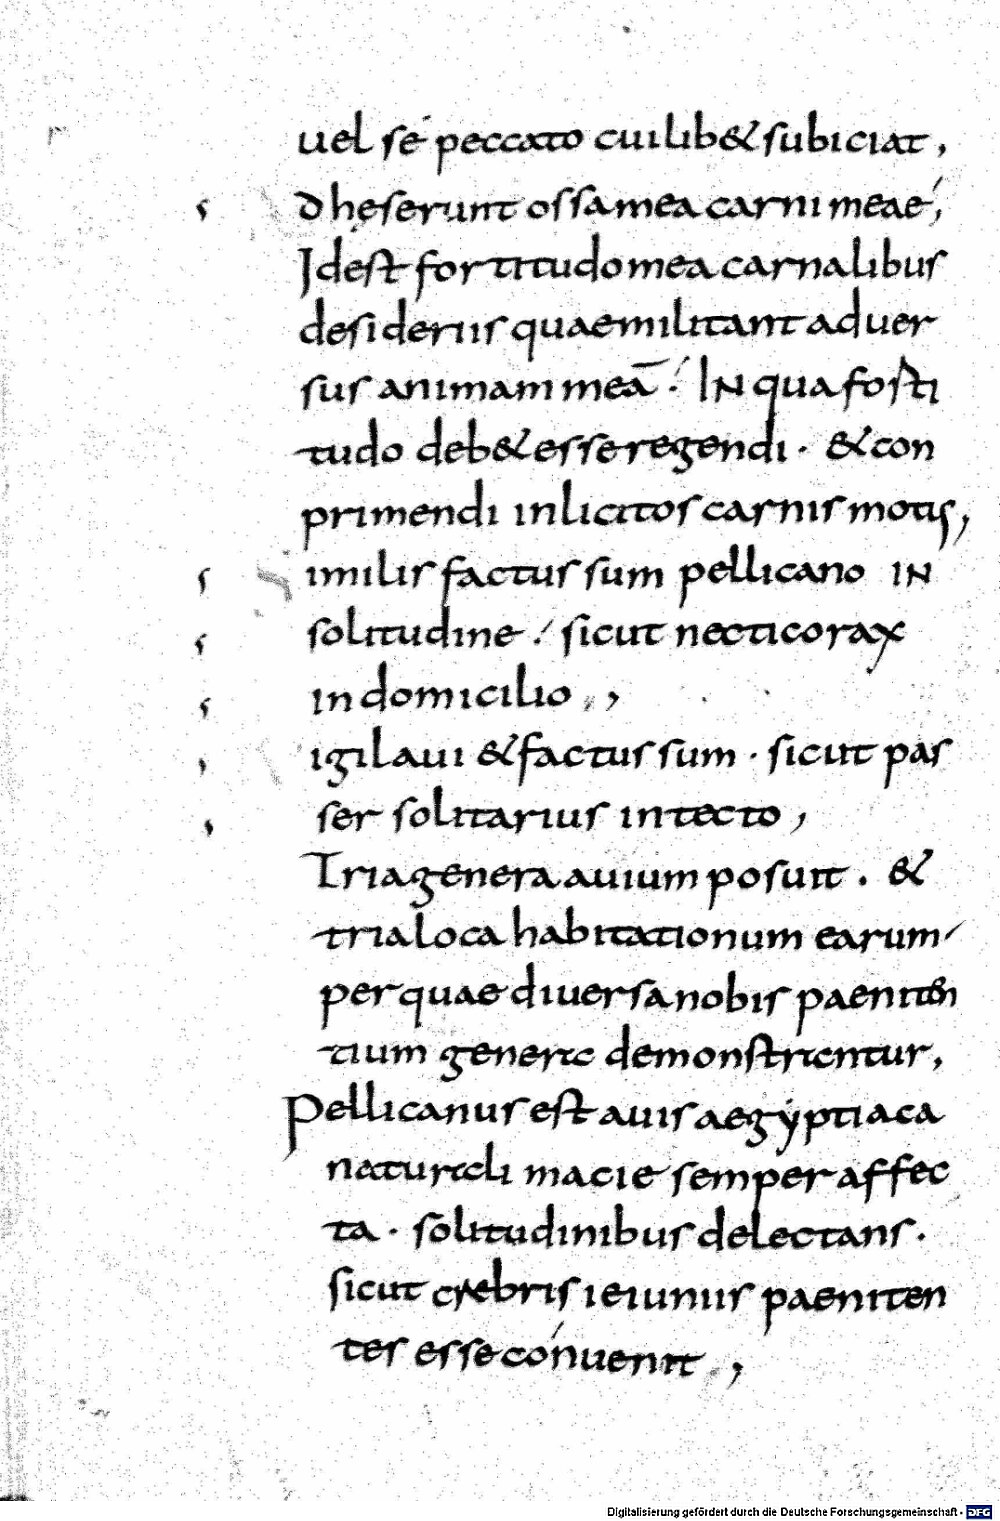 uel se peccato cuilib& subiciat,
Dheserunt ossa mea carni meae,
Idest fortitudo mea carnalibus
desideriis quae militant aduer
sus animam meā. IN qua forti
tudo deb& esse regendi. & con
primendi inlicitos carnis motus,
imilis factus sum pellicano IN
solitudine. sicut necticorax
in domicilio,
igilaui & factus sum. sicut pas
ser solitarius in tecto,
Tria genera auium posuit. &
tria loca habitationum earum
per quae diuersa nobis paeniten
tium genera demonstrantur,
Pellicanus est auis aegẏptiaca
naturali macie semper affec
ta. solitudinibus delectans.
sicut crebris ieiuniis paeniten
tes esse conuenit,
Digitalisierung gefördert durch die Deutsche Forschungsgemeinschaft - DFG